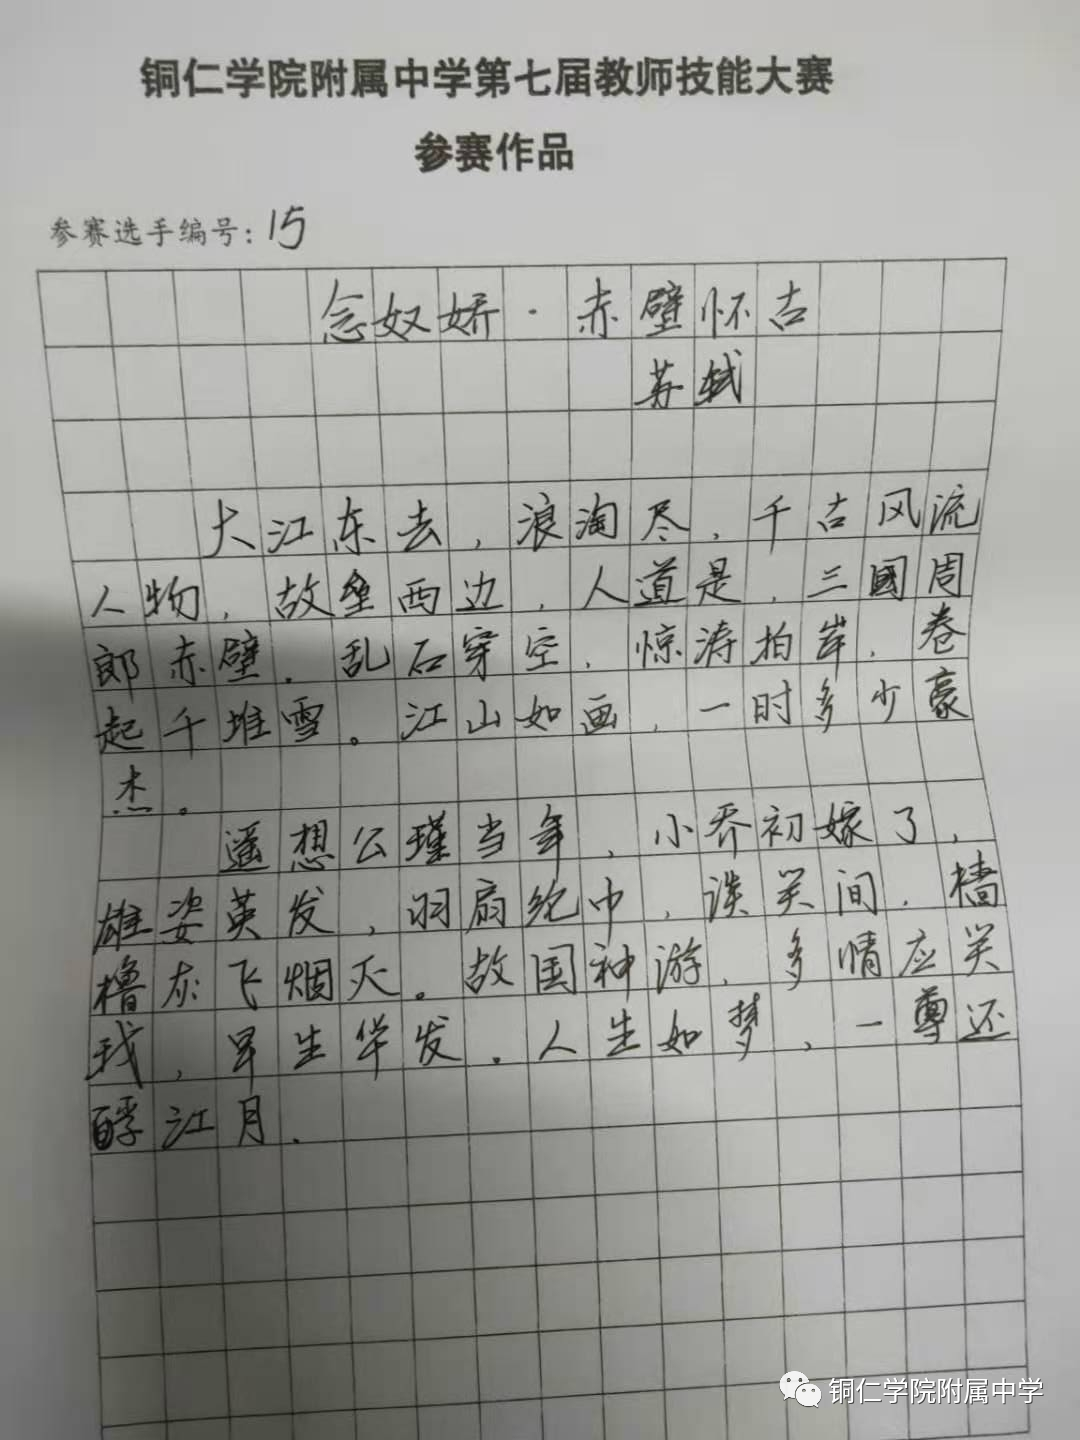 铜仁学院附属中学第七届教师技能大赛
参赛作品
参赛选手编号:15
念奴娇·赤壁怀古
苏轼
大江东去,浪淘尽,千古风流
人物,故垒西边,人道是,三國周
郎赤壁.乱石穿空,惊涛拍岸,卷
起千堆雪。江山如画,一时多少豪
杰。
遥想公瑾当年,小乔初嫁了,
雄姿英发,羽扇纶巾,谈笑间,樯
橹灰飞烟灭。故国神游,多情应笑
我,早生华发.人生如梦,一尊还
酹江月.
铜仁学院附属中学